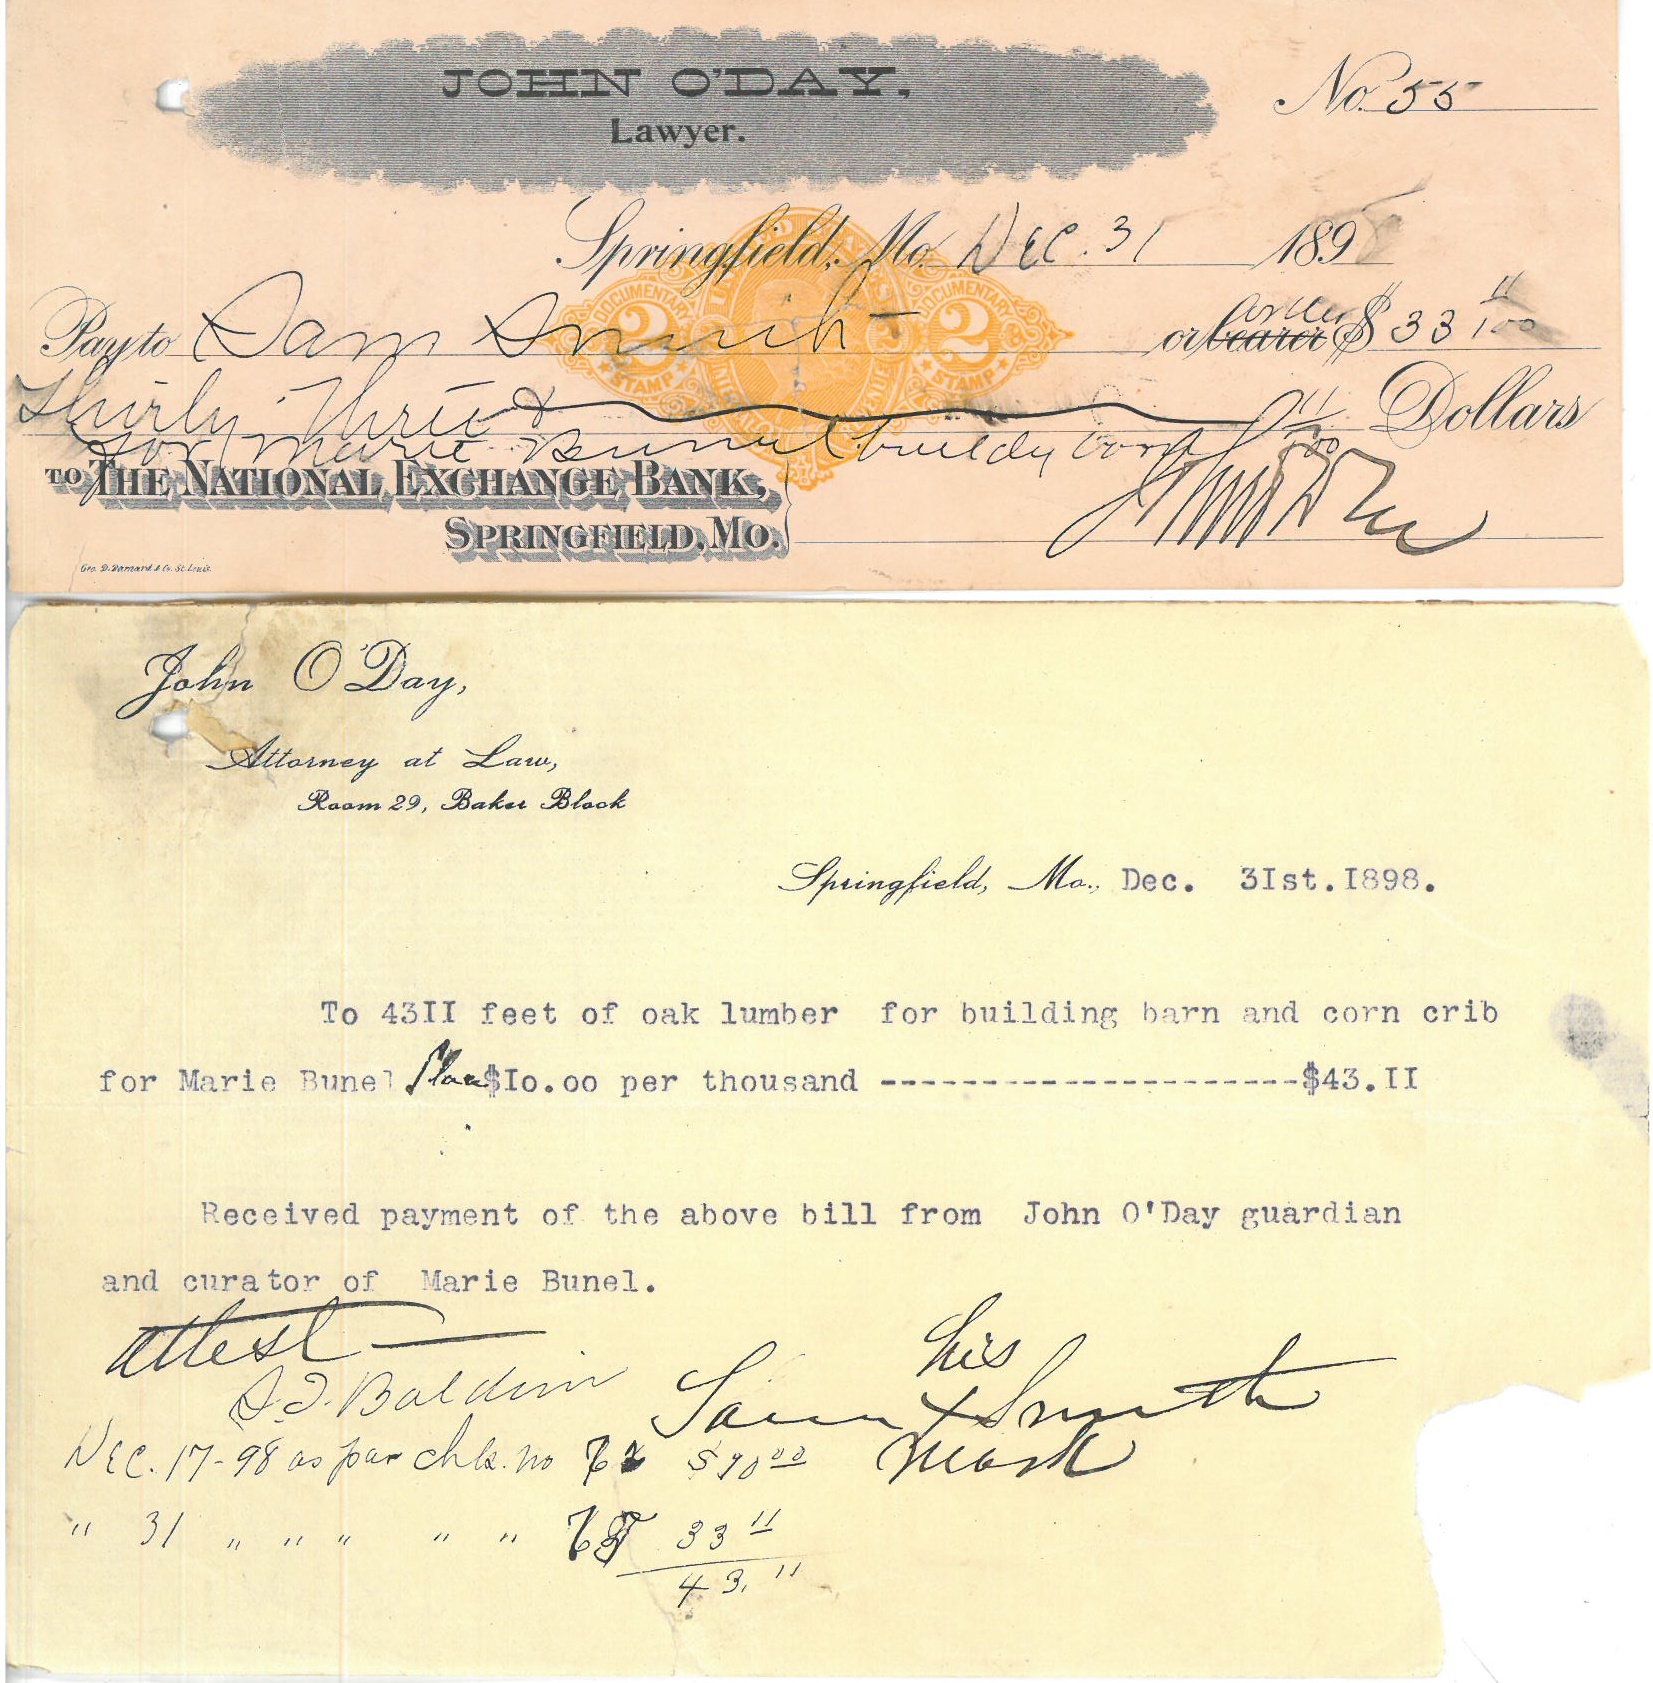 JOHN O'DAY,
Lawyer.
No. 55
Springfield, Mo. Dec. 31 1898
Pay to Sam Smith or bearer order $ 33 11/100
Thirty Three & 11/100 Dollars
for Marie Bunel
TO THE NATIONAL EXCHANGE BANK,
SPRINGFIELD, MO.
John O'Day
DOCUMENTARY 2 STAMP
DOCUMENTARY 2 STAMP
Geo. D. Barnard & Co. St. Louis.
John O'Day,
Attorney at Law,
Room 29, Baker Block
Springfield, Mo., Dec. 3Ist. I898.
To 43II feet of oak lumber for building barn and corn crib
for Marie Bunel $Io.oo per thousand ---------------------$43.II
Received payment of the above bill from John O'Day guardian
and curator of Marie Bunel.
Attest
his
Baldwin
Sam X Smith
mark
Dec. 17-98 as par chk. no $10 00
" 31 " " " " " 33 11
43. 11